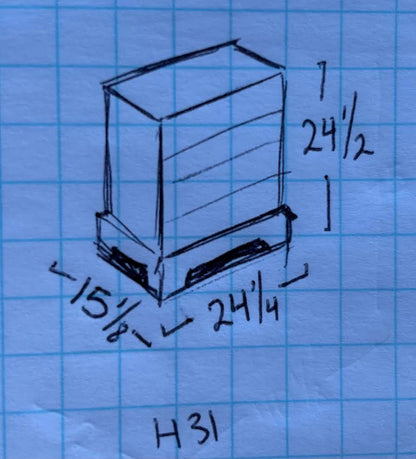 24 1/2
15 1/8
24 1/4
H31